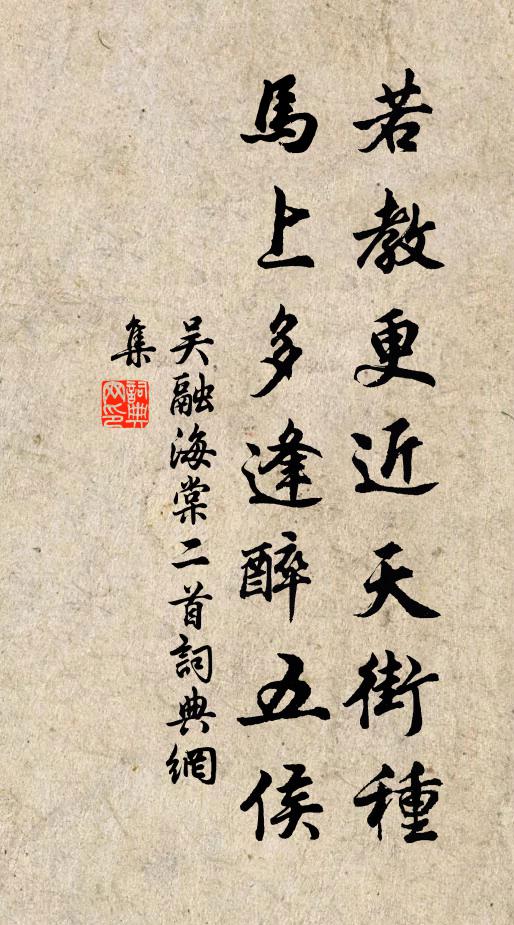 若教更近天街種
馬上多逢醉五侯
吳融海棠二首詞典網
集
詞典
网印